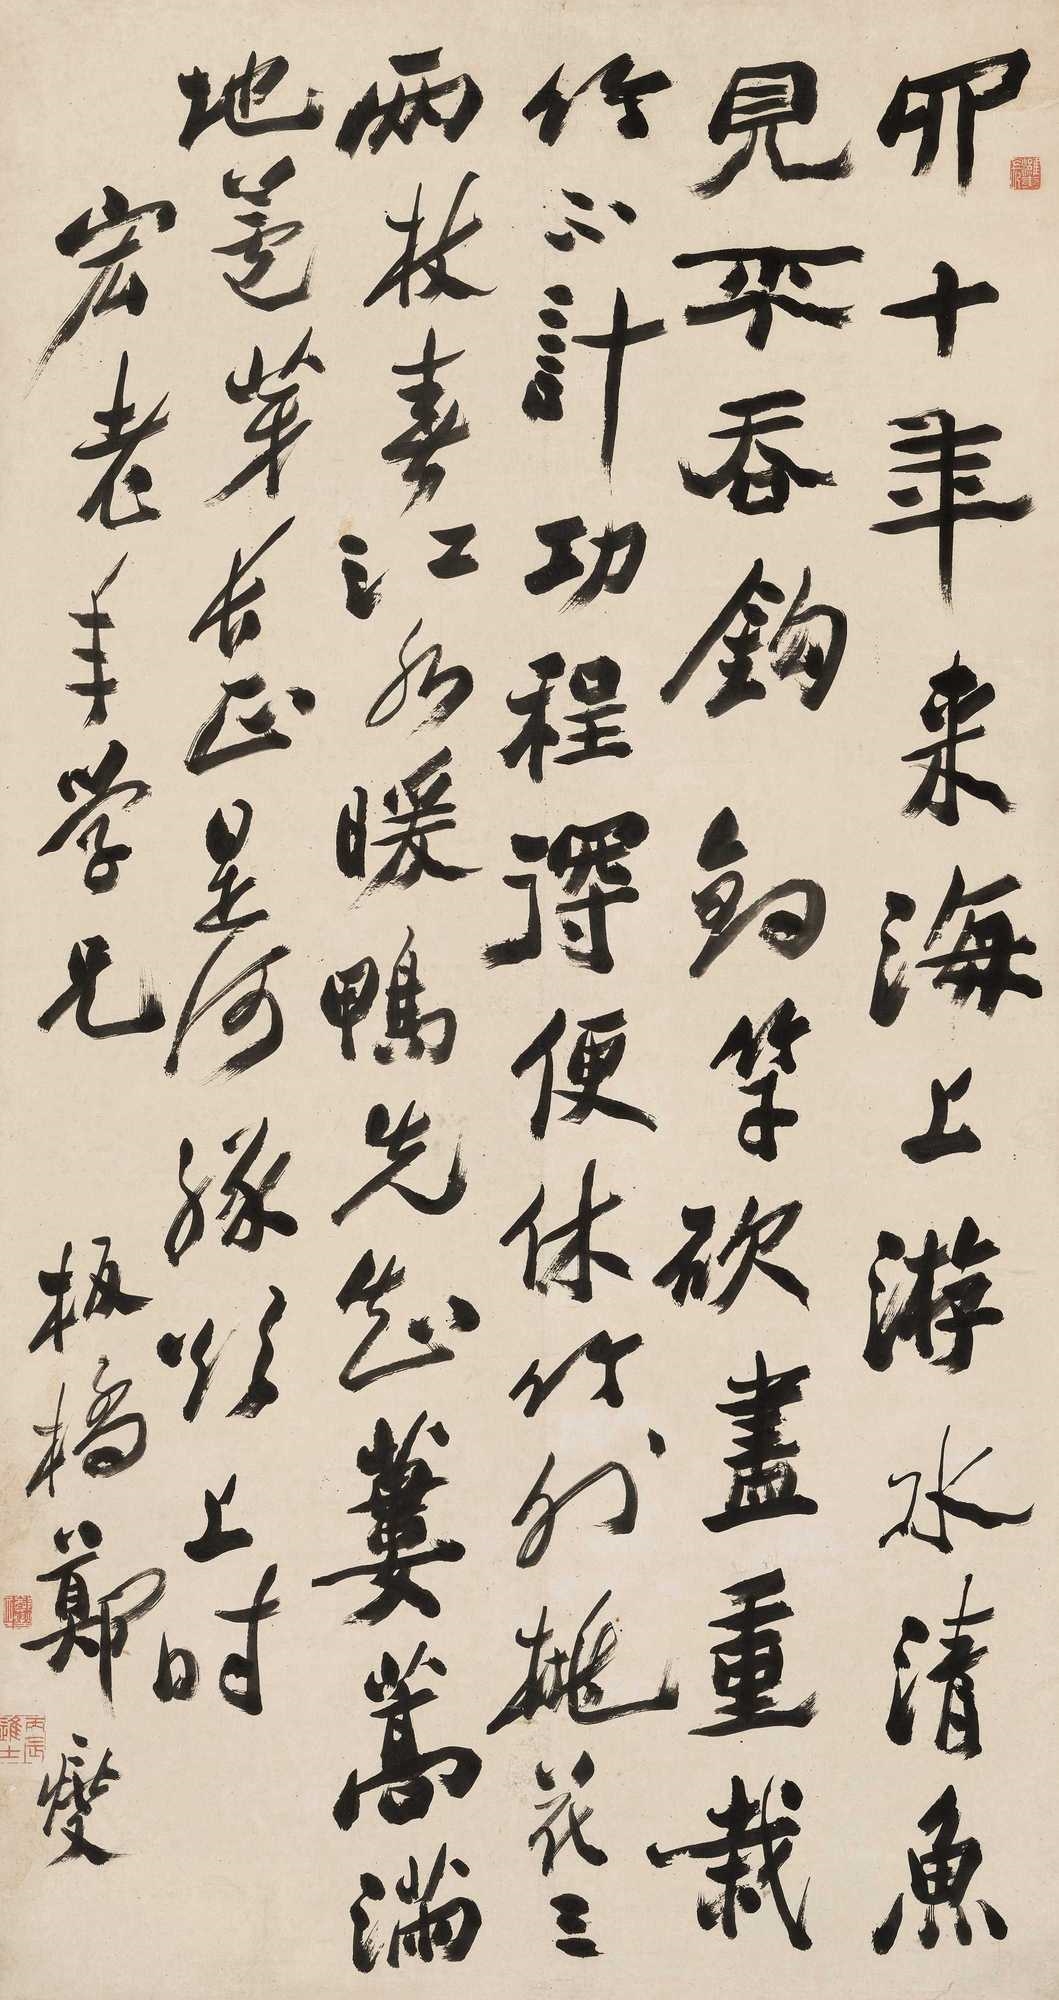 四十年来海上游水清魚
見不吞鈎釣竿砍盡重栽
竹不計功程得便休竹外桃花三
兩枝春江水暖鴨先知蔞蒿滿
地蘆芽長正是河豚欲上時
宏老年学兄 板橋鄭燮
丙辰進士